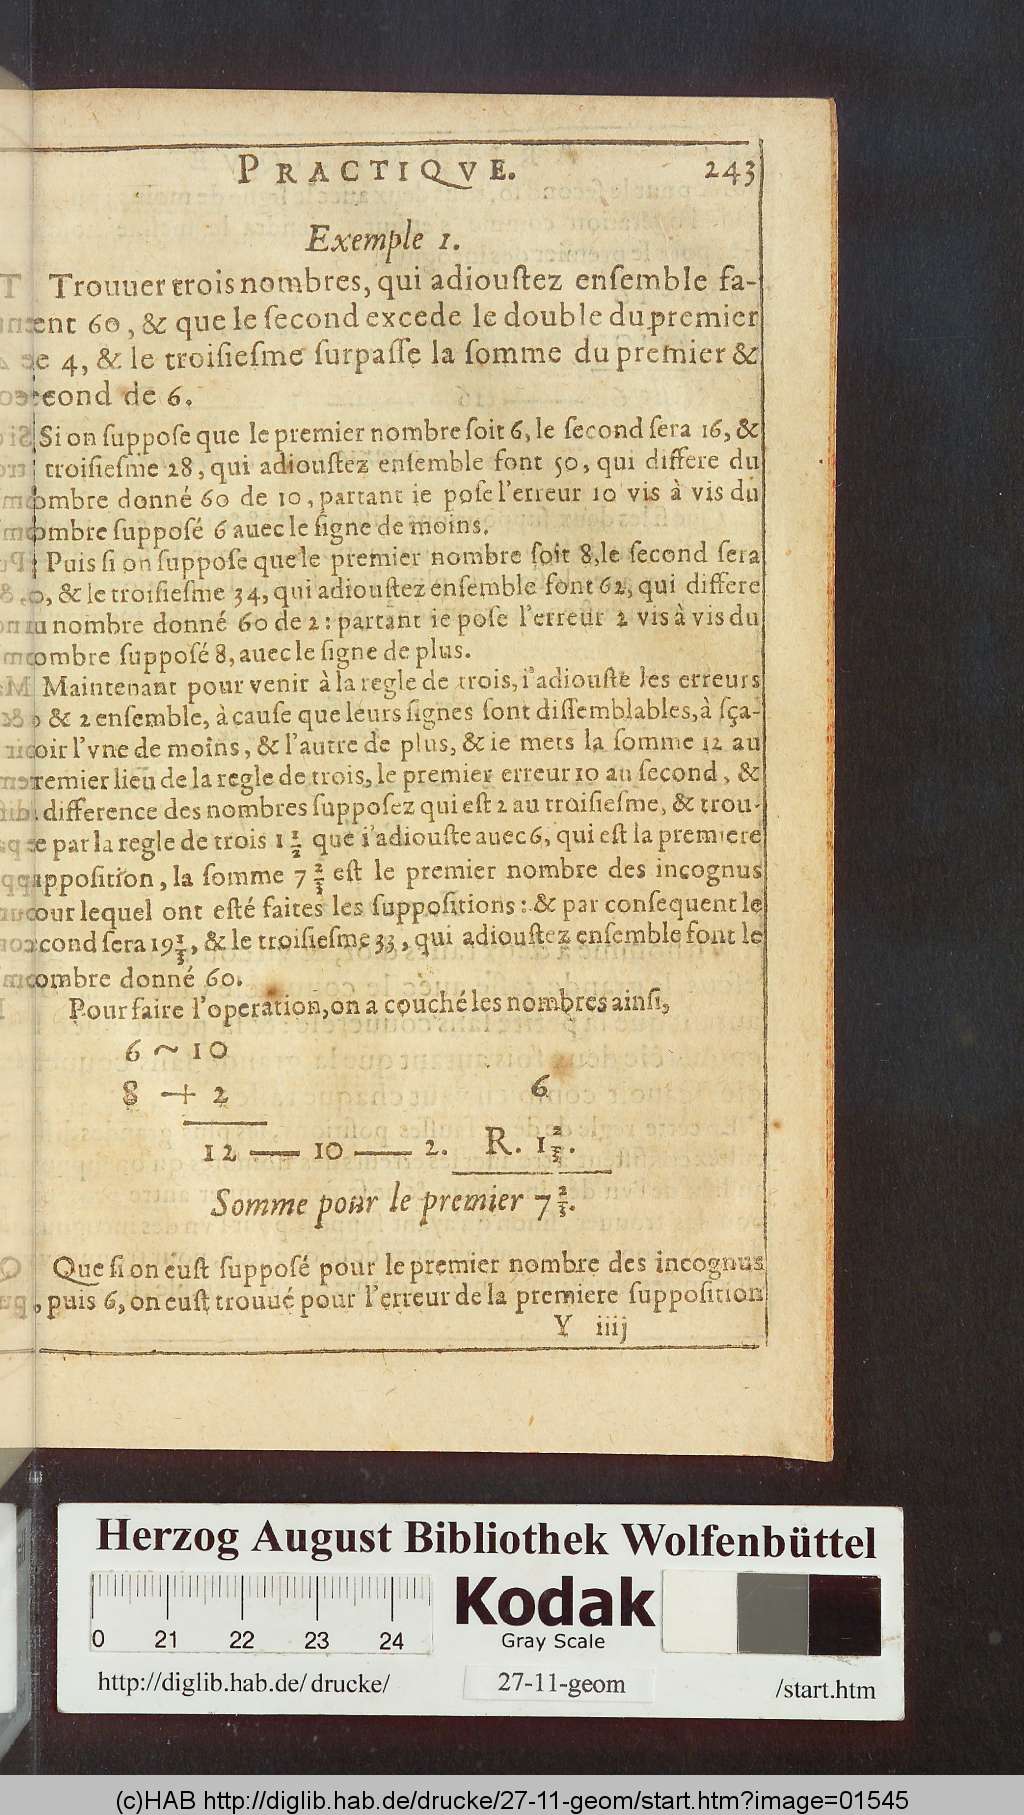 PRACTIQVE. 243
Exemple 1.
Trouuer trois nombres, qui adiouſtez enſemble fa-
ent 60, & que le ſecond excede le double du premier
e 4, & le troiſieſme ſurpaſſe la ſomme du premier &
cond de 6.
Si on ſuppoſe que le premier nombre ſoit 6, le ſecond ſera 16, &
troiſieſme 28, qui adiouſtez enſemble font 50, qui differe du
ombre donné 60 de 10, partant ie poſe l'erreur 10 vis à vis du
ombre ſuppoſé 6 auec le ſigne de moins.
Puis ſi on ſuppoſe que le premier nombre ſoit 8, le ſecond ſera
0, & le troiſieſme 34, qui adiouſtez enſemble font 62, qui differe
u nombre donné 60 de 2: partant ie poſe l'erreur 2 vis à vis du
ombre ſuppoſé 8, auec le ſigne de plus.
Maintenant pour venir à la regle de trois, i'adiouſte les erreurs
& 2 enſemble, à cauſe que leurs ſignes ſont diſſemblables, à ſça-
oir l'vne de moins, & l'autre de plus, & ie mets la ſomme 12 au
remier lieu de la regle de trois, le premier erreur 10 au ſecond, &
difference des nombres ſuppoſez qui eſt 2 au troiſieſme, & trou-
e par la regle de trois 1 2/3 que i'adiouſte auec 6, qui eſt la premiere
uppoſition, la ſomme 7 2/3 eſt le premier nombre des incognus
our lequel ont eſté faites les ſuppoſitions: & par conſequent le
cond ſera 19 1/3, & le troiſieſme 33, qui adiouſtez enſemble font le
ombre donné 60.
Pour faire l'operation, on a couché les nombres ainſi,
6 ~ 10
8 + 2 6
12 — 10 — 2. R. 1 2/3.
Somme pour le premier 7 2/3.
Que ſi on euſt ſuppoſé pour le premier nombre des incognus
, puis 6, on euſt trouué pour l'erreur de la premiere ſuppoſition
Y iiij
Herzog August Bibliothek Wolfenbüttel
Kodak
Gray Scale
0 21 22 23 24
http://diglib.hab.de/drucke/ 27-11-geom /start.htm
(c)HAB http://diglib.hab.de/drucke/27-11-geom/start.htm?image=01545